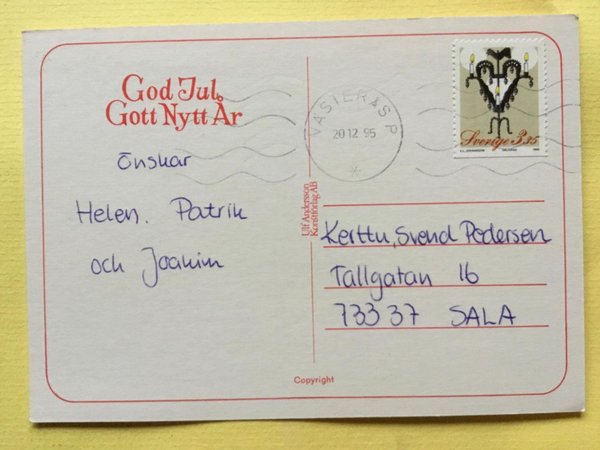 God Jul,
Gott Nytt År
önskar
Helen. Patrik
och Joakim
VÄSTERÅS P
20 12 95
Sverige 3.35
Ulf Andersson
Konstförlag AB
Kerttu, Svend Pedersen
Tallgatan 16
733 37 SALA
Copyright